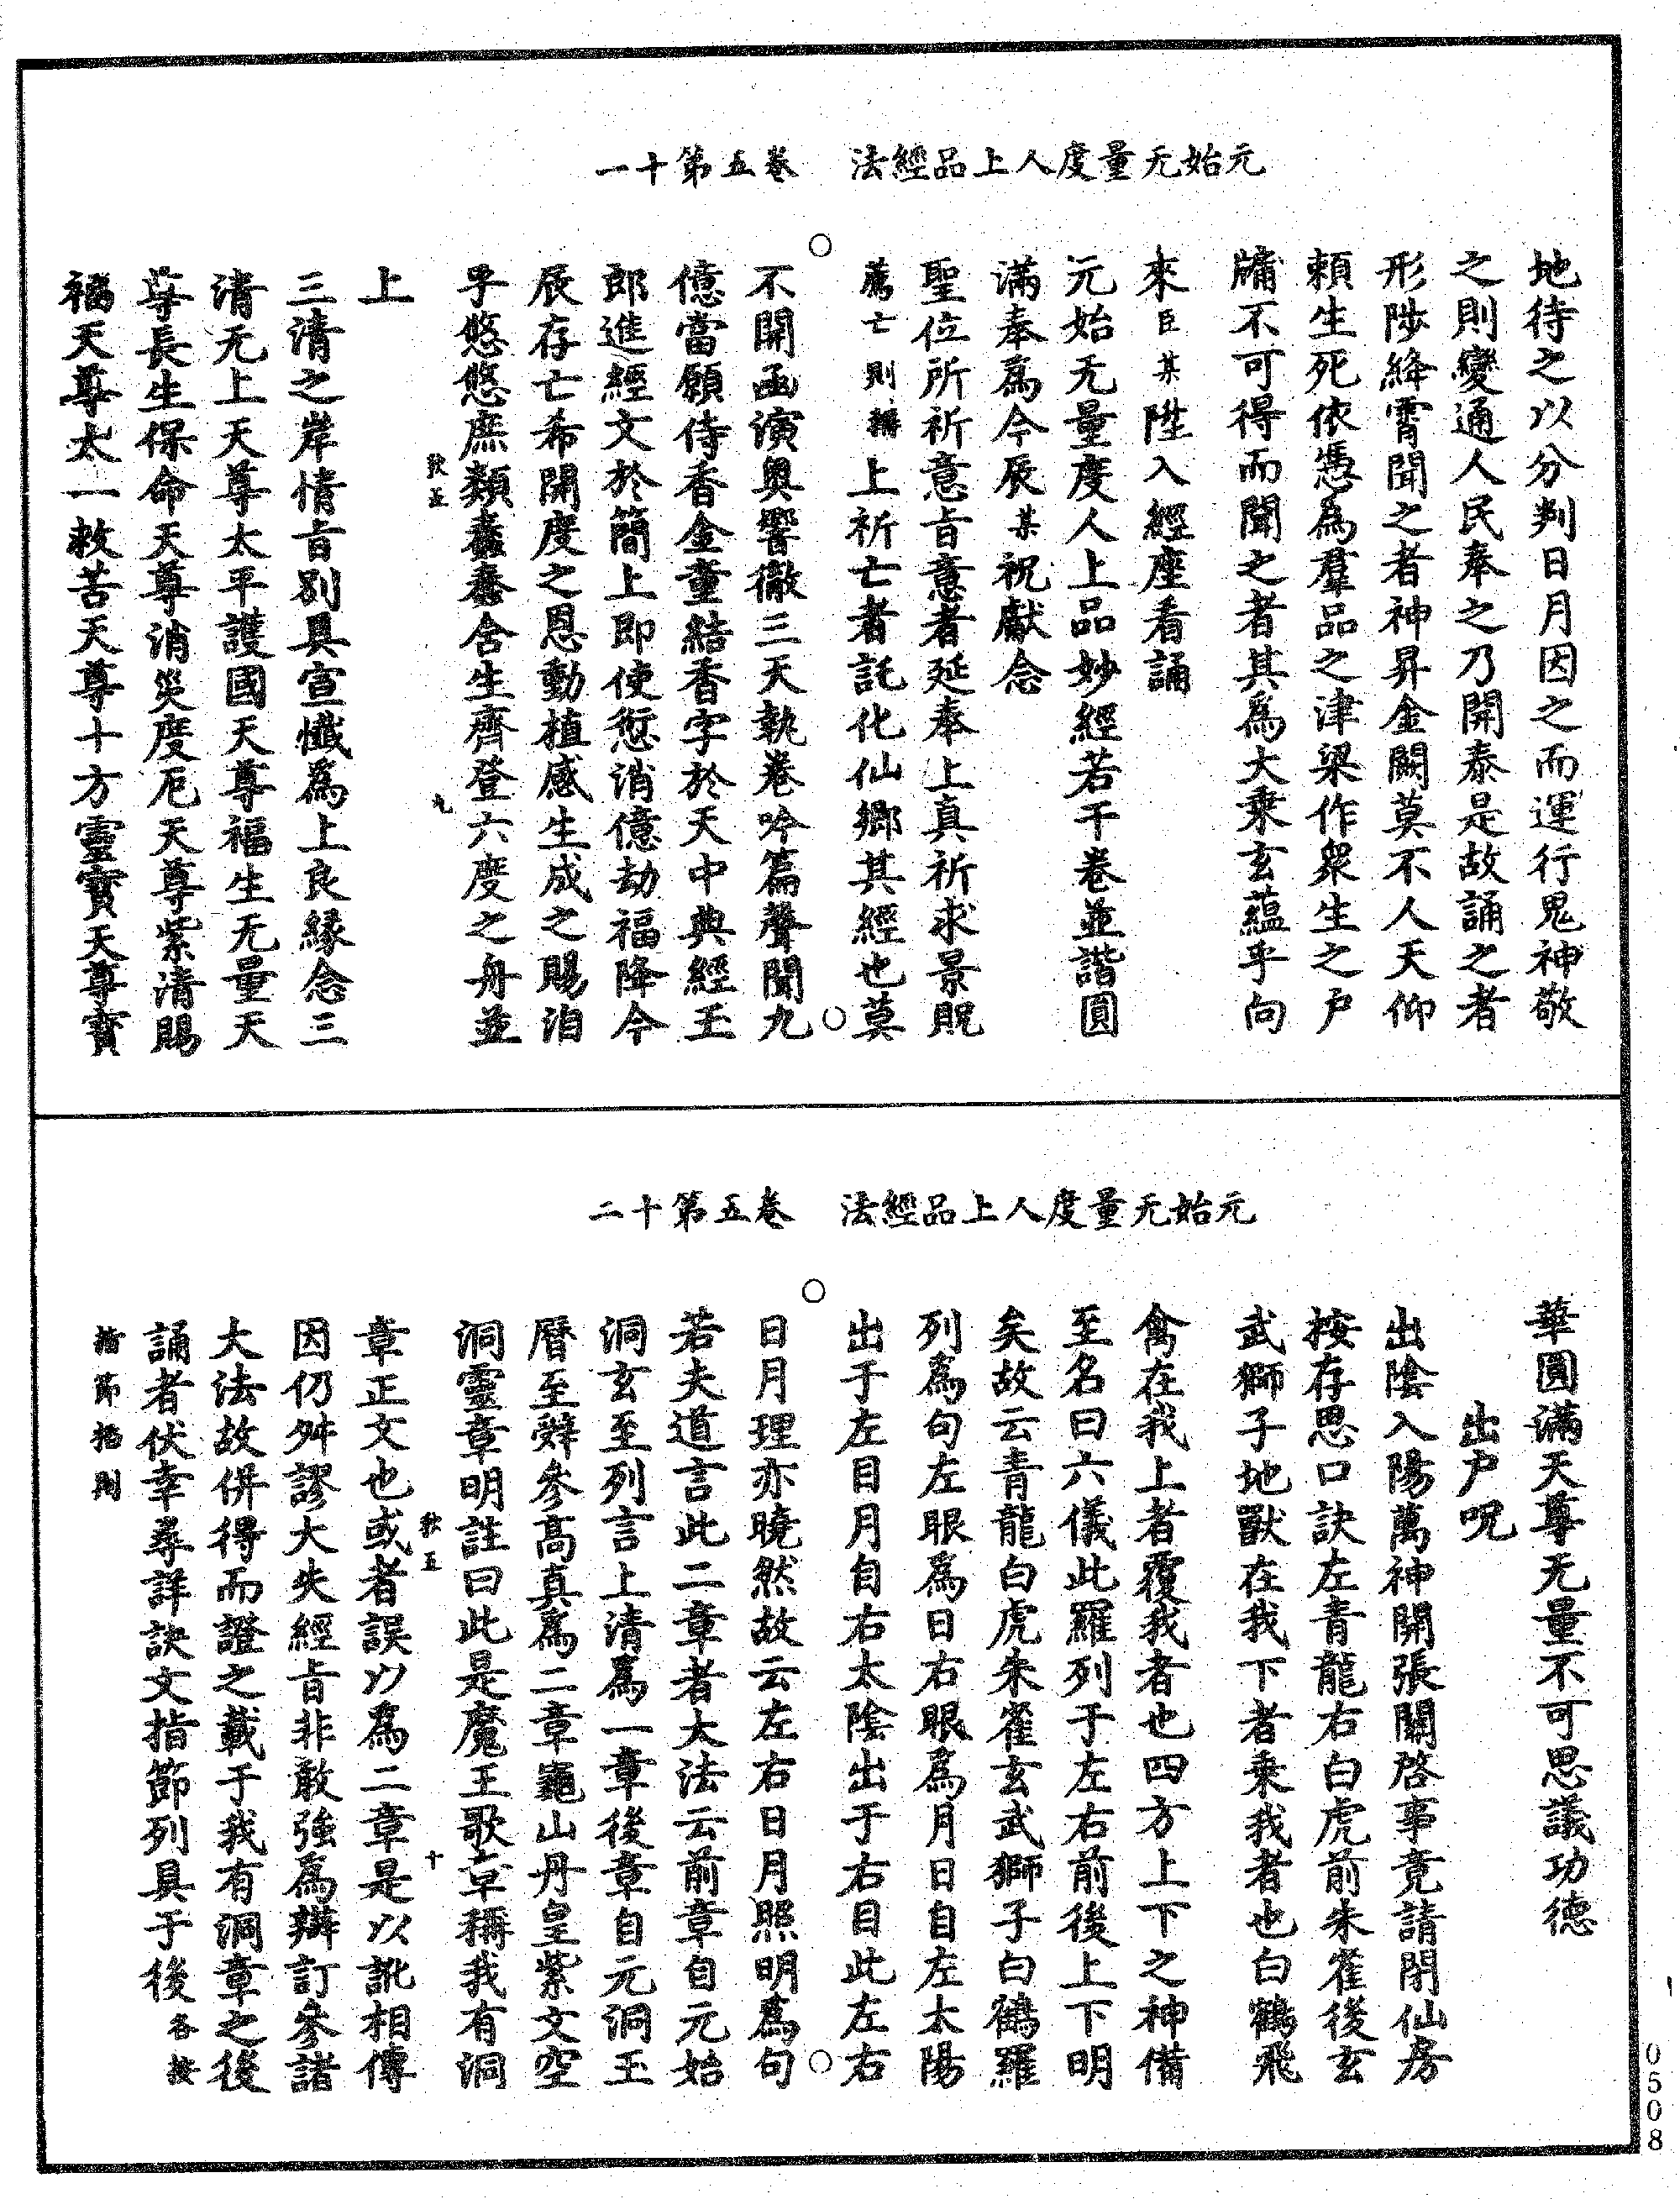 元始无量度人上品經法　卷五第十一
地待之以分判日月因之而運行鬼神敬
之則變通人民奉之乃開泰是故誦之者
形陟絳霄聞之者神昇金闕莫不人天仰
賴生死依憑為羣品之津梁作眾生之戶
牖不可得而聞之者其為大乘玄蘊乎向
來臣某陞入經座看誦
元始无量度人上品妙經若干卷並諧圓
滿奉為今辰某祝獻念
聖位所祈意旨意者延奉上真祈求景貺
薦亡則稱上祈亡者託化仙鄉其經也莫
不開函演奧響徹三天執卷吟篇聲聞九
億當願侍香金童結香字於天中典經玉
郎進經文於簡上即使愆消億劫福降今
辰存亡希開度之恩動植感生成之賜洎
乎悠悠庶類蠢蠢含生齊登六度之舟並
欽五　九
上
三清之岸情旨別具宣懺為上良緣念三
清无上天尊太平護國天尊福生无量天
尊長生保命天尊消災度厄天尊紫清賜
福天尊太一救苦天尊十方靈寶天尊寶
元始无量度人上品經法　卷五第十二
華圓滿天尊无量不可思議功德
出戶呪
出陰入陽萬神開張關啓事竟請閉仙房
按存思口訣左青龍右白虎前朱雀後玄
武獅子地獸在我下者乘我者也白鶴飛
禽在我上者覆我者也四方上下之神備
至名曰六儀此羅列于左右前後上下明
矣故云青龍白虎朱雀玄武獅子白鶴羅
列為句左眼為日右眼為月日自左太陽
出于左目月自右太陰出于右目此左右
日月理亦曉然故云左右日月照明為句
若夫道言此二章者大法云前章自元始
洞玄至列言上清為一章後章自元洞玉
曆至舜參高真為二章龜山丹皇紫文空
洞靈章明註曰此是魔王歌章稱我有洞
欽五　十
章正文也或者誤以為二章是以訛相傳
因仍舛謬大失經旨非敢強為辯訂參諸
大法故併得而證之載于我有洞章之後
誦者伏幸尋詳訣文指節列具于後各按
指節掐剔
0508